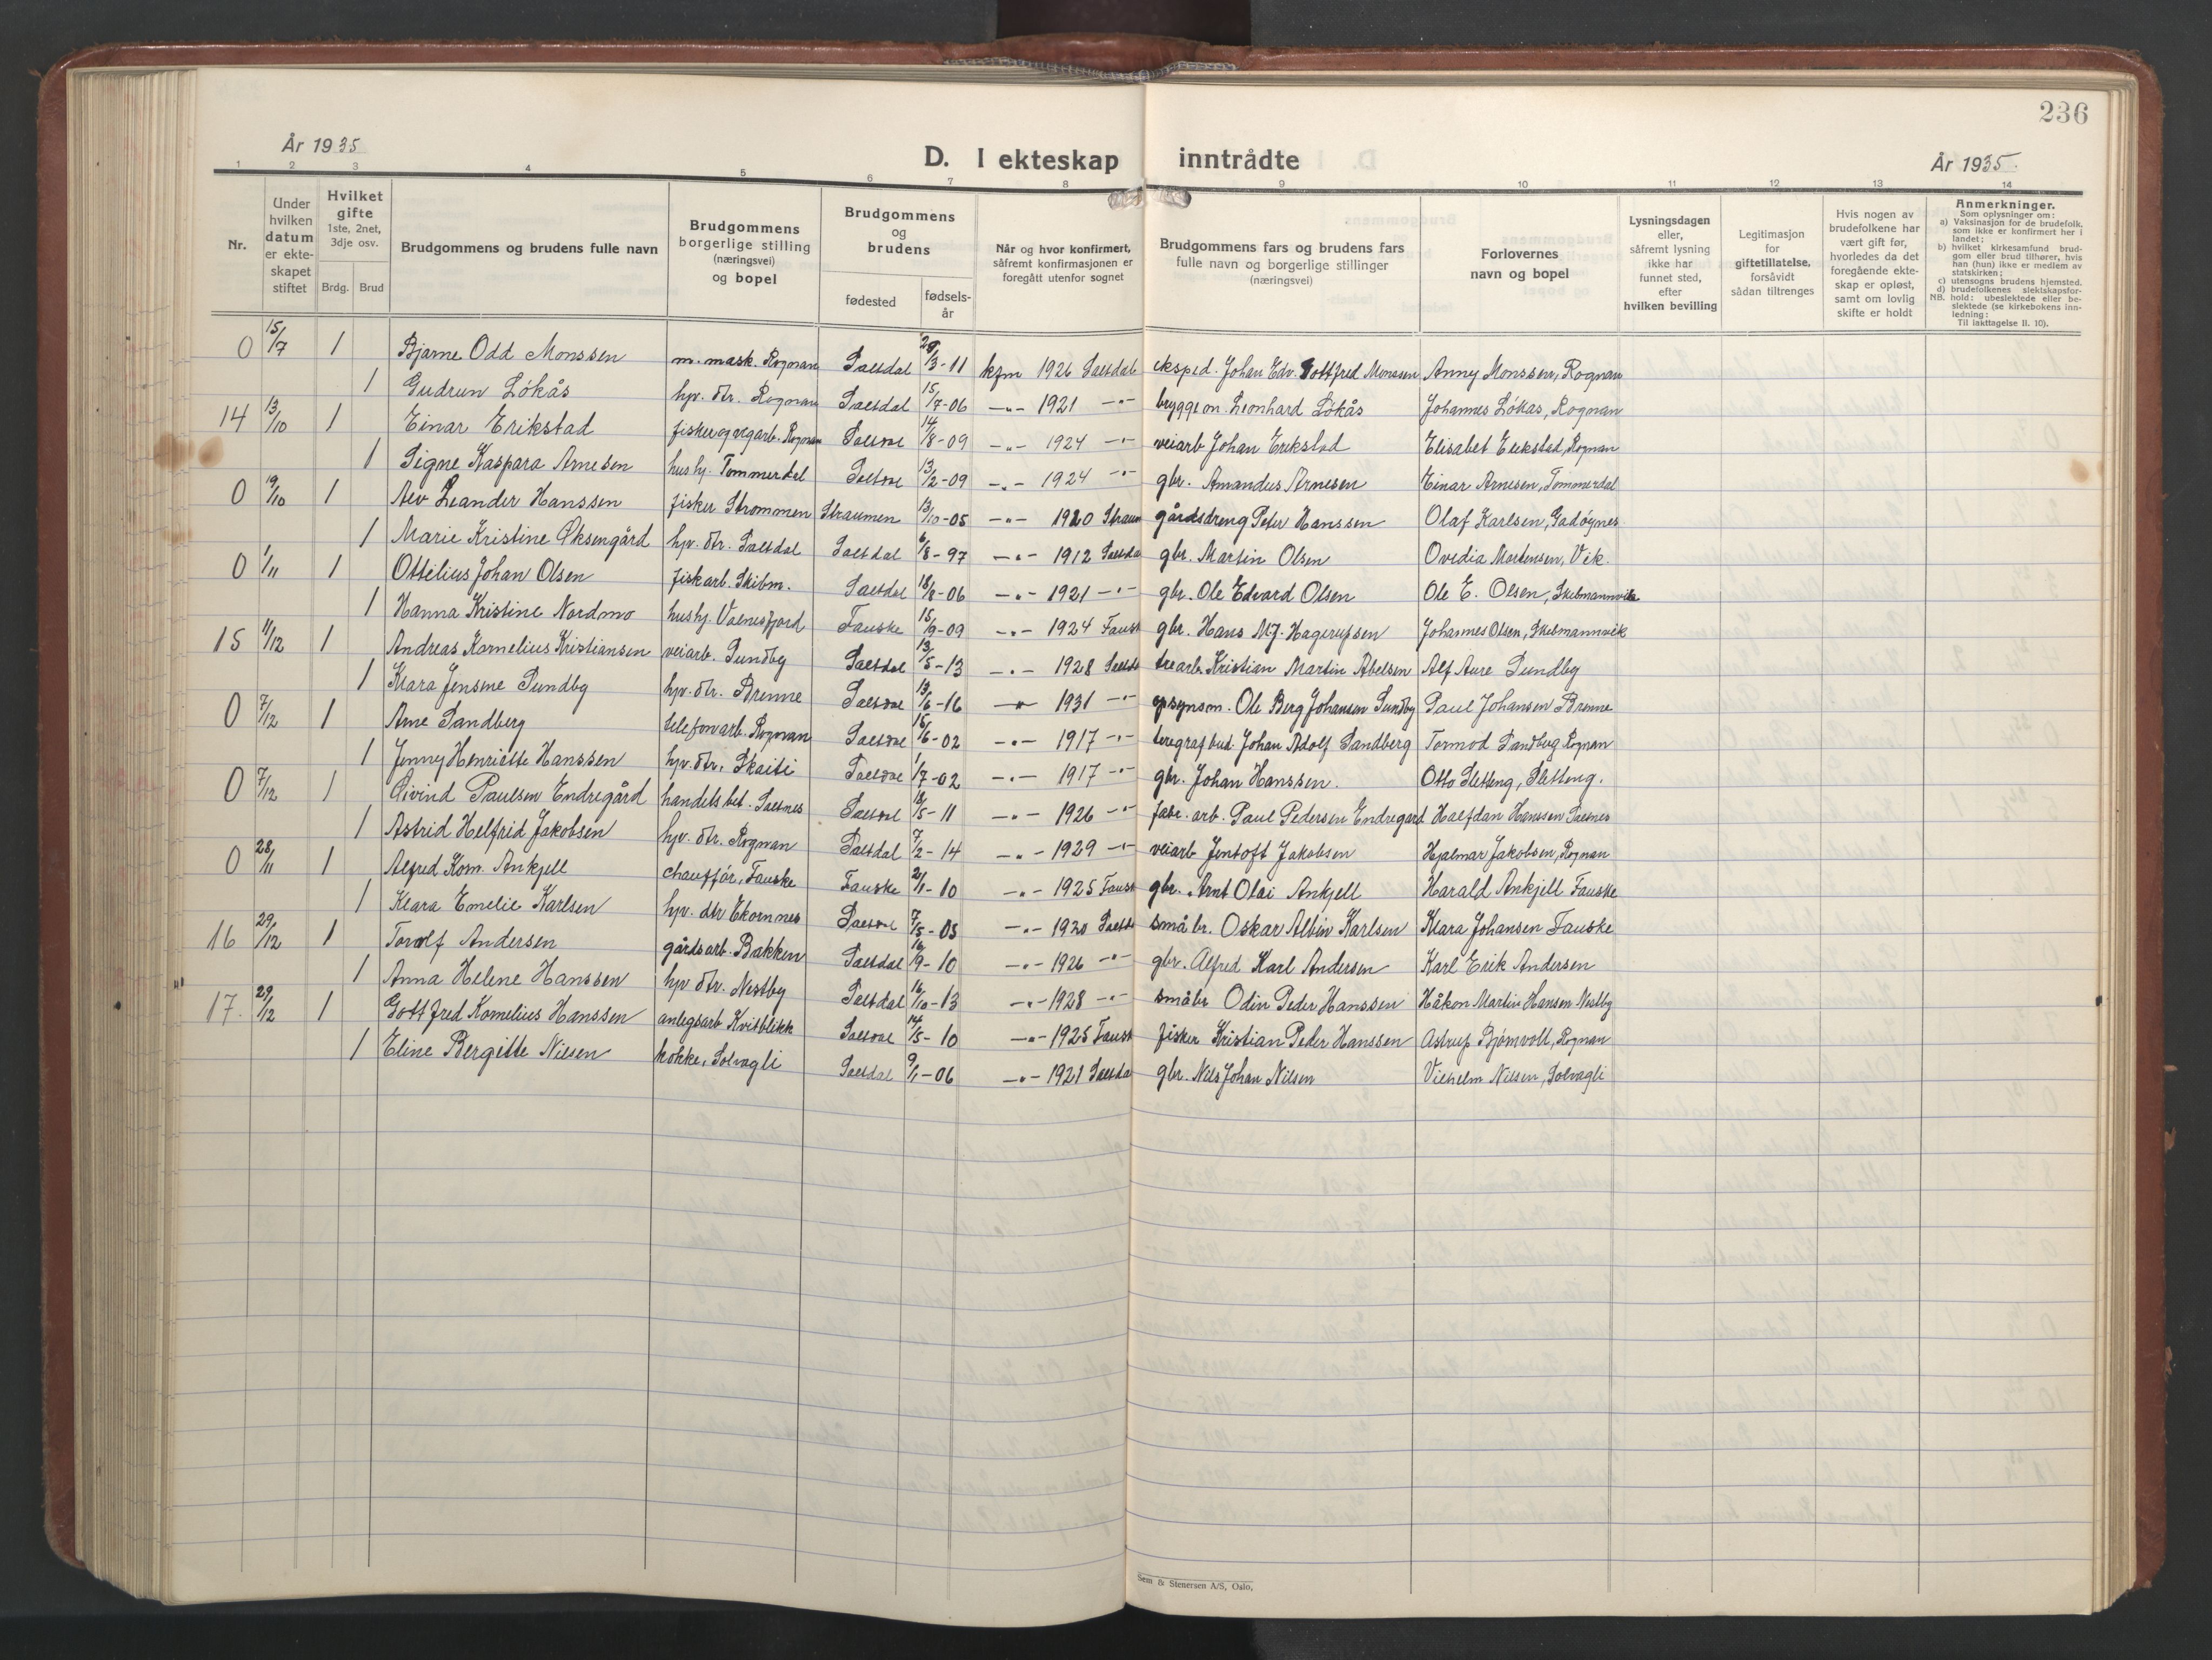 236
År 1935
D. I ekteskap inntrådte
År 1935.
1 2 3 4 5 6 7 8 9 10 11 12 13 14
Nr.
Under hvilken datum er ekte-skapet stiftet
Hvilket gifte 1ste, 2net, 3dje osv.
Brdg. Brud
Brudgommens og brudens fulle navn
Brudgommens borgerlige stilling (næringsvei) og bopel
Brudgommens og brudens
fødested
fødsels-år
Når og hvor konfirmert, såfremt konfirmasjonen er foregått utenfor sognet
Brudgommens fars og brudens fars fulle navn og borgerlige stillinger (næringsvei)
Forlovernes navn og bopel
Lysningsdagen eller, såfremt lysning ikke har funnet sted, efter hvilken bevilling
Legitimasjon for giftetillatelse, forsåvidt sådan tiltrenges
Hvis nogen av brudefolkene har vært gift før, hvorledes da det foregående ekte-skap er opløst, samt om lovlig skifte er holdt
Anmerkninger.
Som oplysninger om:
a) Vaksinasjon for de brudefolk, som ikke er konfirmert her i landet;
b) hvilket kirkesamfund brud-gom eller brud tilhører, hvis han (hun) ikke er medlem av statskirken;
c) utensogns brudens hjemsted.
d) brudefolkenes slektskapsfor-hold: ubeslektede eller be-slektede (se kirkebokens inn-ledning:
NB. Til iakttagelse II. 10).
0 15/7 1 Bjarne Odd Monssen m. mask. Rognan Saltdal 29/3-11 kfm 1926 Saltdal eksped. Johan Edv. Gottfred Monssen Anny Monssen, Rognan
1 Gudrun Løkås hp. dtr. Rognan Saltdal 15/7-06 -"- 1921 -"- bryggem. Leonhard Løkås Johannes Løkås, Rognan
14 13/10 1 Einar Erikstad fisker og vegarb. Rognan Saltdal 14/8-09 -"- 1924 -"- veiarb Johan Erikstad Elisabet Erikstad, Rognan
1 Signe Kaspara Arnesen hushj. Tommerdal Saltdal 13/2-09 -"- 1924 -"- gbr. Amandus Arnesen Einar Arnesen, Tommerdal
0 19/10 1 Alv Leander Hanssen fisker Strømmen Straumen 13/10-05 -"- 1920 Straum gårdsdreng Peter Hanssen Olaf Karlsen, Gadøynes
1 Marie Kristine Øksengård hp. dtr. Saltdal Saltdal 6/8-97 -"- 1912 Saltdal gbr. Martin Olsen Ovedia Martensen, Vik.
0 1/11 1 Ottelius Johan Olsen fiskarb. Skibm. Saltdal 18/8-06 -"- 1921 -"- gbr. Ole Edvard Olsen Ole E. Olsen, Skebmannvik
1 Hanna Kristine Nordmo hushj. Valnesfjord Fauske 15/9-09 -"- 1924 Fausk gbr. Hans M.J. Hagerupsen Johannes Olsen, Skelmannvik
15 11/12 1 Andreas Kornelius Kristiansen veiarb. Sundby Saltdal 13/5-13 -"- 1928 Saltd trearb. Kristian Martin Abelsen Alf Aure Sundby
1 Klara Jensine Sundby hp. dtr. Brenne Saltdal 13/6-16 -"- 1931 -"- opsynsm. Ole Berg Johansen Sundby Paul Johansen Brenne
0 7/12 1 Arne Sandberg telefonarb. Rognan Saltdal 15/6-02 -"- 1917 -"- telegrafbud. Johan Adolf Sandberg Tormod Sandberg Rognan
1 Jenny Henriette Hanssen hp. dtr. Skaiti Saltdal 1/7-02 -"- 1917 -"- gbr. Johan Hanssen. Otto Sletteng, Sletteng.
0 7/12 1 Øivind Paulsen Endregård handelsbet. Saltnes Saltdal 18/5-11 -"- 1926 -"- fabr. arb. Paul Pedersen Endregard Halfdan Hanssen Saltnes
1 Astrid Helfrid Jakobsen hp. dtr. Rognan Saltdal 7/2-14 -"- 1929 -"- veiarb Jentoft Jakobsen Hjalmar Jakobsen, Rognan
0 28/11 1 Alfred Korn. Ankjell chauffør, Fauske Fauske 2/1-10 -"- 1925 Fausk gbr. Arnt Olai Ankjell Harald Ankjell Fauske
1 Klara Emelie Karlsen hp. dtr Ekornnes Saltdal 7/5-05 -"- 1920 Saltd småbr. Oskar Albin Karlsen Klara Johansen Fauske
16 29/12 1 Torolf Andersen gårdsarb. Bakken Saltdal 16/9-10 -"- 1926 -"- gbr. Alfred Karl Andersen Karl Erik Andersen
1 Anna Helene Hanssen hp dtr. Nestby Saltdal 16/10-13 -"- 1928 -"- småbr Odin Peder Hanssen Håkon Martin Hansen Nestby
17. 29/12 1 Gottfred Kornelius Hanssen anlegsarb Kvitblikk Saltdal 14/5-10 -"- 1925 Fausk fisker Kristian Peder Hanssen Astrup Bjørnvolt, Rognan
1 Eline Bergitte Nilsen kokke, Solvagli Saltdal 9/1-06 -"- 1921 Saltda gbr. Nils Johan Nilsen Vilhelm Nilsen, Solvagli
Sem & Stenersen A/S, Oslo.